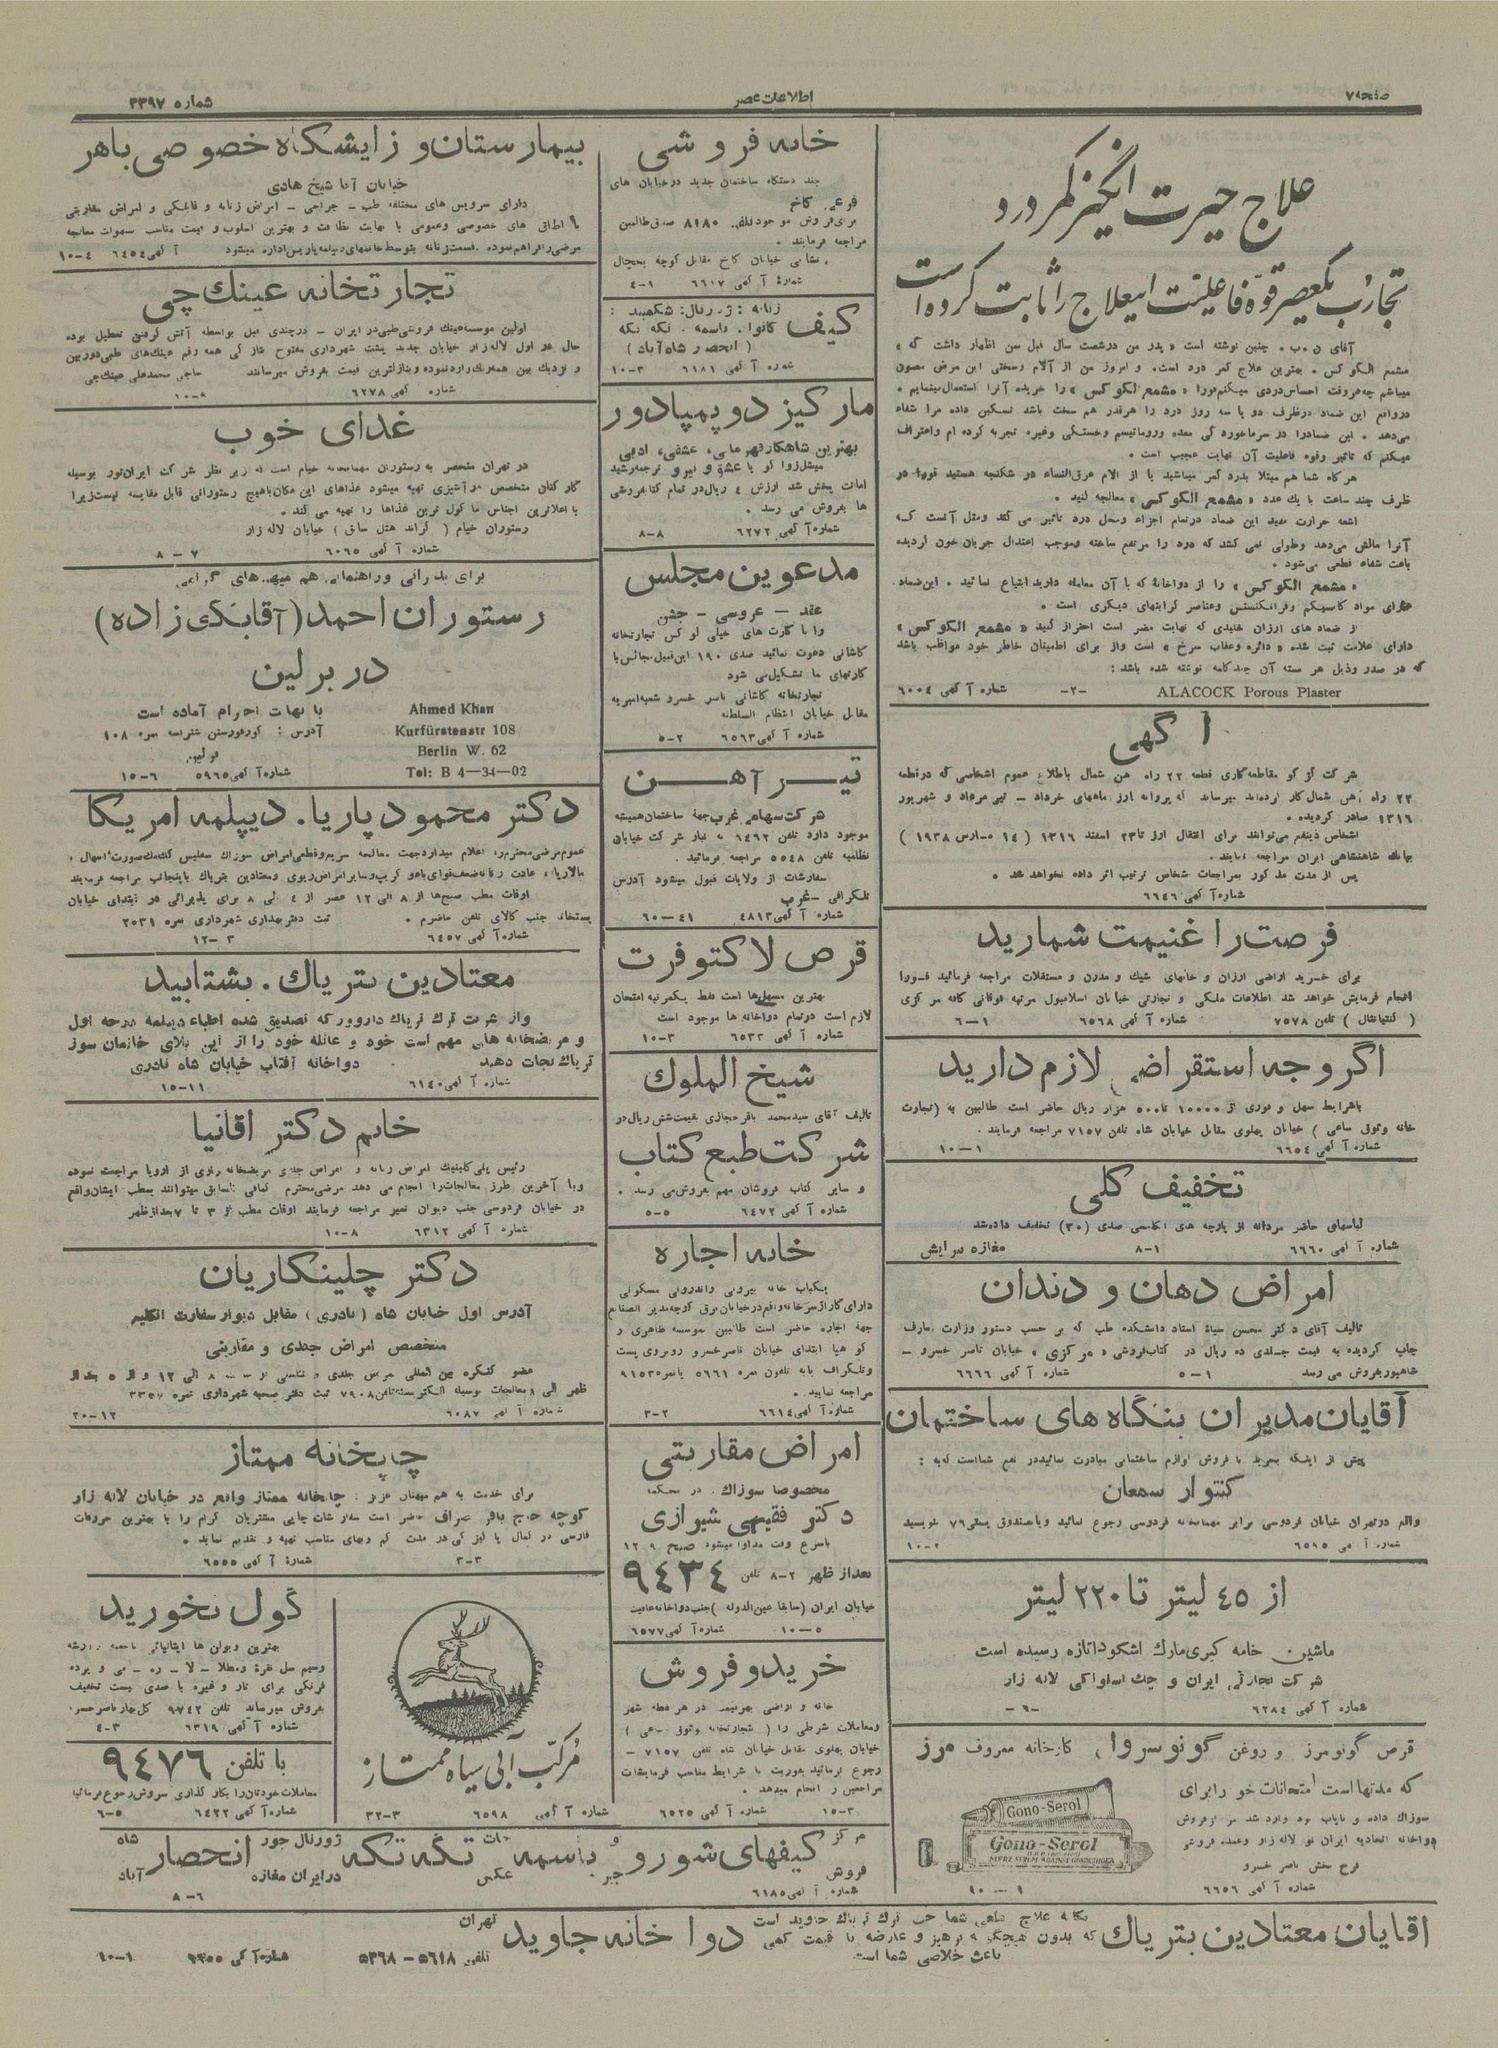 صفحه ۷
اطلاعات عصر
شماره ۳۳۹۷
علاج حیرت انگیز کمردرد
تجارب یکعصر قوه فاعلیت اینعلاج را ثابت کرده است
آقای ن. ب. چنین نوشته است « پدر من درشصت سال قبل بمن اظهار داشت که »
مشمع الکوکس. بهترین علاج کمر درد است. و امروز من از آلام وسختی این مرض مصون
میباشم چه هروقت احساس دردی میکنم فورا « مشمع الکوکس » را خریده آنرا استعمال مینمایم.
درواقع این ضماد درظرف دو یا سه روز درد را هرقدر هم سخت باشد تسکین داده مرا شفاء
می‌دهد. این ضمادرا در سرماخوردگی معده وروماتیسم وخستگی وغیره تجربه کرده ام واعتراف
میکنم که تاثیر وقوه فاعلیت آن نهایت عجیب است.
هر گاه شما هم مبتلا بدرد کمر میباشید یا از آلام عرق‌النساء در شکنجه هستید فورا در
ظرف چند ساعت با یک عدد « مشمع الکوکس » معالجه کنید.
اشعه حرارت مفید این ضماد درتمام اجزاء ومحل درد تاثیر می کند ومثل آنست که
آنرا مالش می‌دهد وطولی نمی کشد که درد را مرتفع ساخته وموجب اعتدال جریان خون گردیده
باعث شفاء قطعی می‌شود.
« مشمع الکوکس » را از دواخانه که با آن معامله دارید ابتیاع نمائید. این ضماد
دارای مواد کاپسیکم وفرانکنسنس وعناصر گرانبهای دیگری است.
از ضماد های ارزان تقلیدی که نهایت مضر است احتراز کنید « مشمع الکوکس »
دارای علامت ثبت شده « دائره وعقاب سرخ » است واز برای اطمینان خاطر خود مواظب باشد
که در صدر وذیل هر بسته آن چند کلمه نوشته شده باشد:
ALACOCK Porous Plaster
-۲- شماره آگهی ۶۰۰۴
آگهی
شرکت کو کو مقاطعه کاری قطعه ۲۲ راه آهن شمال باطلاع عموم اشخاصی که درقطعه
۲۲ راه آهن شمال کار کرده‌اند میرساند که پروانه ارز ماههای خرداد – تیر مرداد و شهریور
۱۳۱۶ صادر گردیده.
اشخاص ذینفع می‌توانند برای انتقال ارز تا ۲۳ اسفند ۱۳۱۶ ( ۱۴ مارس ۱۹۳۸ )
ببانک شاهنشاهی ایران مراجعه نمایند.
پس از مدت مذکور بمراجعات شخاص ترتیب اثر داده نخواهد شد.
شماره آ گهی ۶۶۴۶
فرصت را غنیمت شمارید
برای خرید اراضی ارزان و خانهای شیک و مدرن و مستغلات مراجعه فرمائید فورا
انجام فرمایش خواهد شد اطلاعات ملکی و تجارتی خیابان اسلامبول مرتبه فوقانی کافه مرکزی
( کنتیانتال ) تلفن ۷۵۷۸ شماره آ گهی ۶۵۶۸ ۱–۶
اگر وجه استقراضی لازم دارید
باشرایط سهل و فوری از ۱۰۰۰۰ تا ۵۰۰ هزار ریال حاضر است طالبین به (تجارت
خانه وثوق ساعی ) خیابان پهلوی مقابل خیابان شاه تلفن ۷۱۵۷ مراجعه فرمایند.
شماره آ گهی ۶۶۵۴ ۱–۱۰
تخفیف کلی
لباسهای حاضر مردانه از پارچه های انگلیسی صدی (۳۰) تخفیف داده شد
شماره آ گهی ۶۶۶۰ ۱–۸ مغازه سرایش
امراض دهان و دندان
تالیف آقای دکتر محسن سیاح استاد دانشکده طب که بر حسب دستور وزارت معارف
چاپ گردیده به قیمت جلدی ده ریال در کتاب‌فروشی « مرکزی » خیابان ناصر خسرو –
شاهپور بفروش می رسد ۱–۵ شماره آ گهی ۶۶۶۶
آقایان مدیران بنگاه های ساختمان
پیش از اینکه بخرید یا فروش لوازم ساختمانی مبادرت نمائید در نفع شما است که به :
کنتوار سمعان
واقع درتهران خیابان فردوسی برابر مهمانخانه فردوسی رجوع نمائید ویا صندوق پستی ۷۶ بنویسید
شماره آ گهی ۶۵۹۵ ۲–۱۰
از ۴۵ لیتر تا ۲۲۰ لیتر
ماشین خامه گیری مارک اشکودا تازه رسیده است
شرکت تجارتی ایران و چک اسلواکی لاله زار
شماره آ گهی ۶۲۸۴ -۹-
قرص گونومرز و روغن گونوسرول کارخانه معروف مرز
که مدتها است امتحانات خو را برای
سوزاک داده و نایاب بود وارد شد مرکز فروش
دواخانه اتحادیه ایران نو لاله زار وعمده فروشی
فرح بخش ناصر خسرو
شماره آ گهی ۶۶۵۶ ۱–۱۰
Gono-Serol
Gono-Serol
خانه فروشی
چند دستگاه ساختمان جدید در خیابان های
فرعی کاخ
برای فروش موجود تلفن ۸۱۸۰ صدق طالبین
مراجعه فرمایند.
نشانی خیابان کاخ مقابل کوچه یخچال
شمارهٔ آ گهی ۶۶۱۷ ۱–۴
کیف
زنانه : ژورنال: شکهبند :
کانوا. باسمه. تکه تکه
( انحصار شاه آباد )
شماره آ گهی ۶۱۸۱ ۳–۱۰
مارکیز دو پمپادور
بهترین شاهکار قهرمانی، عشقی، ادبی
میشل زواکو با عشق و نیرو ترجمه رشید
امانت پخش شد ارزش ٤ ریال در تمام کتابفروشی
ها بفروش می رسد.
شماره آ گهی ۶۲۷۲ ۸–۸
مدعوین مجلس
عقد – عروسی – جشن
را با کارت های خیلی لوکس تجارتخانه
کاشانی دعوت نمائید صدی ۱۹۰ این قبیل مجالس با
کارتهای ما تشکیل می شود
تجارتخانه کاشانی ناصر خسرو شعبه امیریه
مقابل خیابان انتظام السلطنه
شماره آ گهی ۶۵۶۳ ۲–۵
تیر آهن
شرکت سهامی غرب جهة ساختمان همیشه
موجود دارد تلفن ۶۴۶۲ انبار شرکت خیابان
نظامیه تلفن ۵۵۴۸ مراجعه فرمائید.
سفارشات از ولایات قبول میشود آدرس
تلگرافی – غرب
شماره آ گهی ۴۸۱۳ ۴۱–۶۰
قرص لاکتوفرت
بهترین مسهل‌ها است فقط یکمرتبه امتحان
لازم است در تمام دواخانه ها موجود است
شماره آ گهی ۶۵۳۳ ۳–۱۰
شیخ الملوک
تالیف آقای سیدمحمد باقر حجازی بقیمت شش ریال در
شرکت طبع کتاب
و سایر کتاب فروشان مهم بفروش می رسد.
شماره آ گهی ۶۴۷۲ ۵–۵
خانه اجاره
یکباب خانه بیرونی واندرونی مسکونی
دارای گاراژ سرخانه واقع در خیابان برق کوچه مدیر الصنایع
جهة اجاره حاضر است طالبین موسسه طاهری و
کوهیا ابتدای خیابان ناصرخسرو روبروی پست
وتلگراف یا به تلفون نمره ۵۶۶۱ یا نمره ۹۱۵۳
مراجعه نمایند.
شماره آ گهی ۶۶۱۴ ۲–۳
امراض مقاربتی
مخصوصا سوزاک در محکمه
دکتر فقیهی شیرازی
باسرع وقت مداوا میشود صبح ۹ ۱۲
بعداز ظهر ۲–۸ تلفن ۹۴۳۴
خیابان ایران (سابقا عین الدوله ) جنب دواخانه عنایت
شماره آ گهی ۶۵۷۷ ۵–۱۰
خرید و فروش
خانه و اراضی بهرقیمه در هر نقطه شهر
ومعاملات شرطی را ( تجارتخانه وثوق ساعی )
خیابان پهلوی مقابل خیابان شاه تلفن ۷۱۵۷ –
رجوع فرمائید بفوریت با شرایط مناسب فرمایشات
مراجعین را انجام میدهد.
شماره آ گهی ۶۵۲۵ ۳–۱۵
بیمارستان و زایشگاه خصوصی باهر
خیابان آقا شیخ هادی
دارای سرویس های مختلفه طب – جراحی – امراض زنانه و قابلگی و امراض مقاربتی
با اطاق های خصوصی وعمومی با نهایت نظافت و بهترین اسلوب و قیمت مناسب سهولت معالجه
مرضی را فراهم نموده. قسمت زنانه بتوسط خانمهای دیپلمه پاریس اداره میشود آ گهی ۶۴۵۴ ٤–۱۰
تجارتخانه عینک چی
اولین موسسه عینک فروشی طبی در ایران – در چندی قبل بواسطه آتش گرفتن تعطیل بوده
حال در اول لاله زار خیابان جدید پشت شهرداری مفتوح شاز کی همه رقم عینک‌های طبی دور بین
و نزدیک بین همه رنگ وارد نموده و بنازلترین قیمت بفروش میرسانند حاجی محمدعلی عینک چی
شماره آ گهی ۶۲۷۸ ۹–۱۰
غذای خوب
در تهران منحصر به رستوران مهمانخانه خیام است که زیر نظر شرکت ایران تور بوسیله
کارکنان متخصص در آشپزی تهیه میشود غذاهای این مکان با هیچ رستورانی قابل مقایسه نیست زیرا
با اعلاترین اجناس ماکول ترین غذاها را تهیه می کند.
رستوران خیام ( گراند هتل سابق ) خیابان لاله زار
شماره آ گهی ۶۰۶۵ ۷–۸
برای پذیرائی وراهنمائی هم میهن های گرامی
رستوران احمد (آقابکی زاده)
در برلین
با نهایت احترام آماده است
آدرس : کورفورستن شتراسه نمره ۱۰۸
برلین
شماره آ گهی ۵۹۶۵ ۶–۱۵
Ahmed Khan
Kurfürstenstr 108
Berlin W. 62
Tel: B 4—34—02
دکتر محمود پاریا. دیپلمه امریکا
عموم مرضی محترم را اعلام میدارد جهت معالجه سریع وقطعی امراض سوزاک سفلیس کک مک صورت اسهال،
مالاریا، عادت زنانه ضعف قوای باه و گریپ و سایر امراض ریوی ومعتادین بتریاک باینجانب مراجعه فرمایند
اوقات مطب صبح‌ها از ۸ الی ۱۲ عصر از ٤ الی ۸ برای پذیرائی در ابتدای خیابان
پستخانه جنب کالای تلفن حاضرم. ثبت دفتر بهداری شهرداری نمره ۲۰۳۱
شماره آ گهی ۶۴۵۷ ۳–۱۲
معتادین بتریاک. بشتابید
واز شربت ترک تریاک داروور که تصدیق شده اطباء دیپلمه درجه اول
و مریضخانه های مهم است خود و عائله خود را از این بلای خانمان سوز
تریاک نجات دهید دواخانه آفتاب خیابان شاه نادری
شماره آ گهی ۶۱۴۰ ۱۱–۱۵
خانم دکتر اقانیا
رئیس پلی کلینیک امراض زنانه و امراض جلدی مریضخانه رازی از اروپا مراجعت نموده
وبا آخرین طرز معالجات را انجام می دهد مرضی محترم کمافی السابق میتوانند بمطب ایشان واقع
در خیابان فردوسی جنب دیوان تمیز مراجعه فرمایند اوقات مطب از ۳ تا ۷ بعدازظهر
شماره آ گهی ۶۳۱۲ ۸–۱۰
دکتر چلینگاریان
آدرس اول خیابان شاه (نادری) مقابل دیوار سفارت انگلیم
متخصص امراض جلدی و مقاربتی
عضو کنگره بین المللی مرض جلدی و تناسلی از ساعت ۸ الی ۱۲ و از ۵ بعد از
ظهر الی ۸ معالجات بوسیله الکتریسیته تلفن ۷۹۰۸ ثبت دفتر صحیه شهرداری نمره ۳۳۵۷
شماره آ گهی ۶۰۸۷ ۱۲–۲۰
چاپخانه ممتاز
برای خدمت به هم میهنان عزیز. چاپخانه ممتاز واقع در خیابان لاله زار
کوچه حاج باقر صراف حاضر است سفارشات چاپی مشتریان گرام را با بهترین حروفات
فارسی در کمال پاکیزکی در مدت کم وبهای مناسب تهیه و تقدیم نماید.
شمارهٔ آ گهی ۶۵۵۵ ۳–۳
گول نخورید
بهترین ویولن ها ایتالیائی
وسیم سل نقرهٔ ومطلا – لا – ره – می و پرده
فرنگی برای تار و غیره با صدی بیست تخفیف
بفروش میرساند تلفن ۹۷۴۲ گل بهار ناصر خسرو
شماره آ گهی ۶۳۱۹ ۳–٤
با تلفن ۹۴۷۶
معاملات خودتان را بکار گذاری سروش رجوع فرمائید
شماره آ گهی ۶۴۲۲ ۵–۶
مرکب آبی سیاه ممتاز
شماره آ گهی ۶۵۹۸ ۳–۳۲
مرکز فروش کیفهای شور و و جیر باسمه جات عکس تکه تکه ژورنال جور در ایران مغازه انحصار شاه آباد
شماره آ گهی ۶۱۸۵ ۶–۸
آقایان معتادین بتریاک
یگانه علاج قطعی شما حب ترک تریاک جاوید است
که بدون هیچگونه پرهیز و عارضه با قیمت کمی
باعث خلاصی شما است
دواخانه جاوید
تهران
تلفن ۵۶۱۸ – ۵۳۶۸
شماره آ گهی ۶۳۵۵ ۶–۱۰